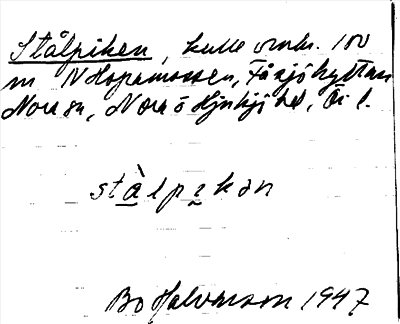 Stålpiken, kulle omkr. 100
m N Hopamossen, Fåsjöhyttan
Nora sn, Nora o Hjulsjö hd, Ör l.
stå̀lpikən
Bo Halvarson 1947